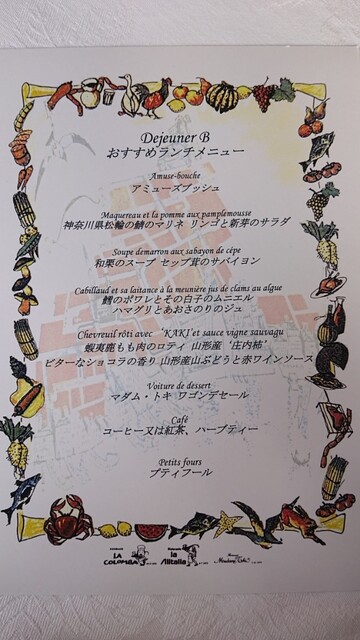 Dejeuner B
おすすめランチメニュー
Amuse-bouche
アミューズブッシュ
Maquereau et la pomme aux pamplemousse
神奈川県松輪の鯖のマリネ リンゴと新芽のサラダ
Soupe demarron aux sabayon de cépe
和栗のスープ セップ茸のサバイヨン
Cabillaud et sa laitance à la meunière jus de clams au algue
鱈のポワレとその白子のムニエル
ハマグリとあおさのりのジュ
Chevreuil rôti avec 'KAKI'et sauce vigne sauvagu
蝦夷鹿もも肉のロティ 山形産‘庄内柿’
ビターなショコラの香り 山形産山ぶどうと赤ワインソース
Voiture de dessert
マダム・トキ ワゴンデセール
Café
コーヒー又は紅茶、ハーブティー
Petits fours
プティフール
LA COLOMBA
la Alitalia